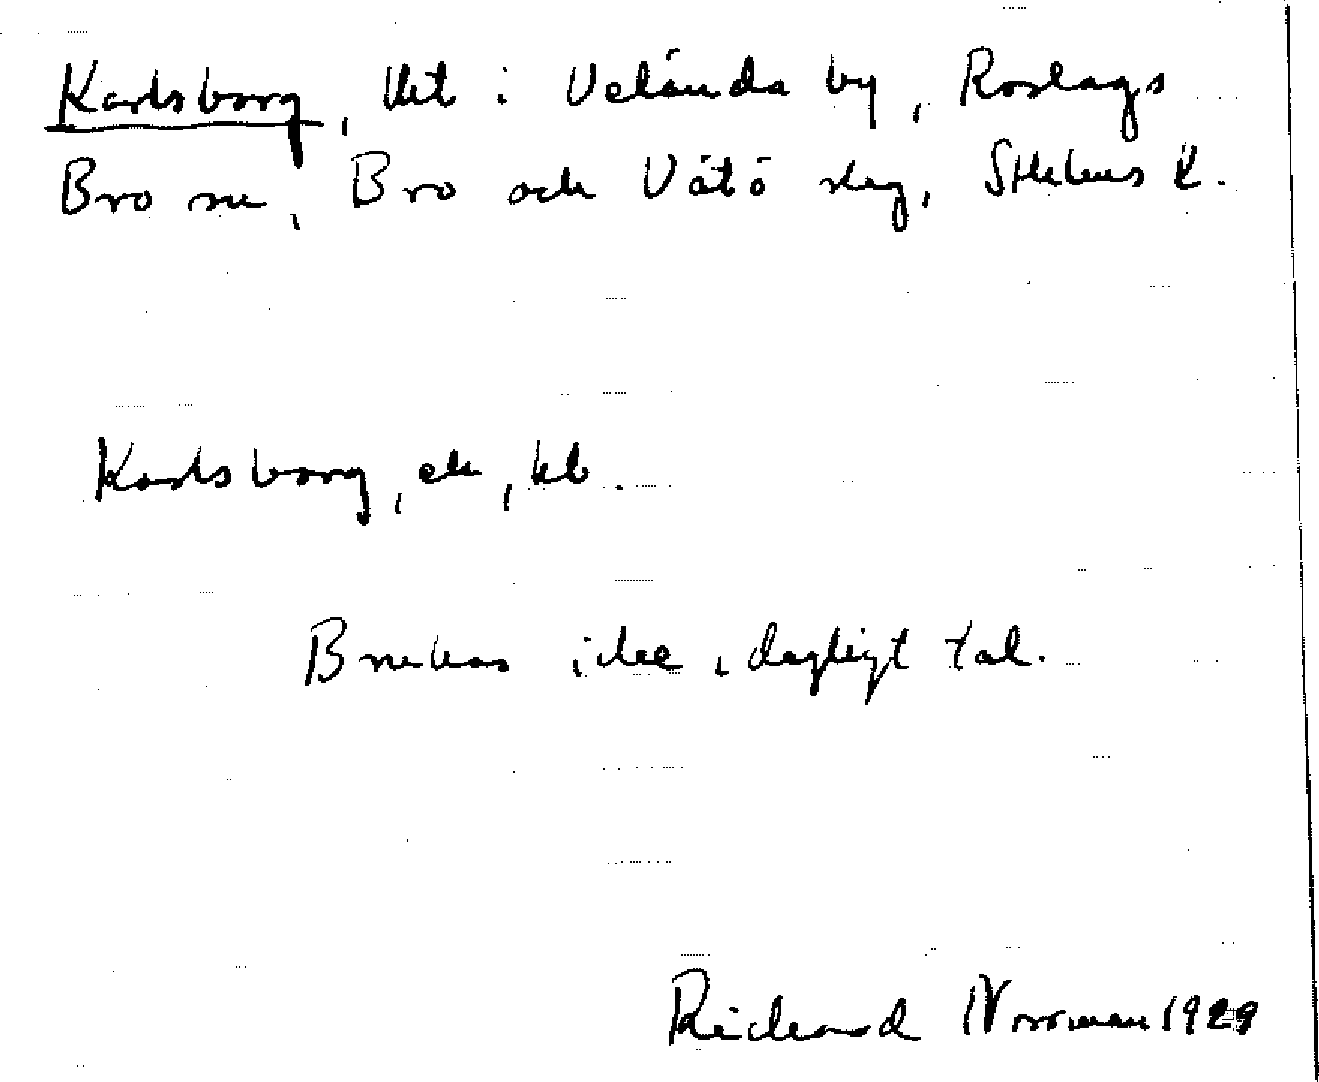 Karlsborg, lht i Velånda by, Roslags
Bro sn, Bro och Vätö skg, Sthlms l.
Karlsborg, ek, kb.
Brukas icke i dagligt tal.
Richard Norrman 1929